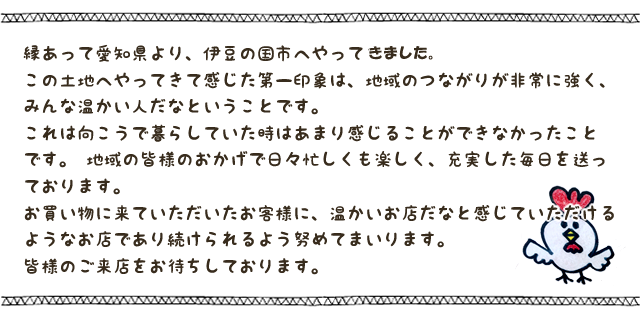 縁あって愛知県より、伊豆の国市へやってきました。
この土地へやってきて感じた第一印象は、地域のつながりが非常に強く、
みんな温かい人だなということです。
これは向こうで暮らしていた時はあまり感じることができなかったこと
です。 地域の皆様のおかげで日々忙しくも楽しく、充実した毎日を送っ
ております。
お買い物に来ていただいたお客様に、温かいお店だなと感じていただける
ようなお店であり続けられるよう努めてまいります。
皆様のご来店をお待ちしております。